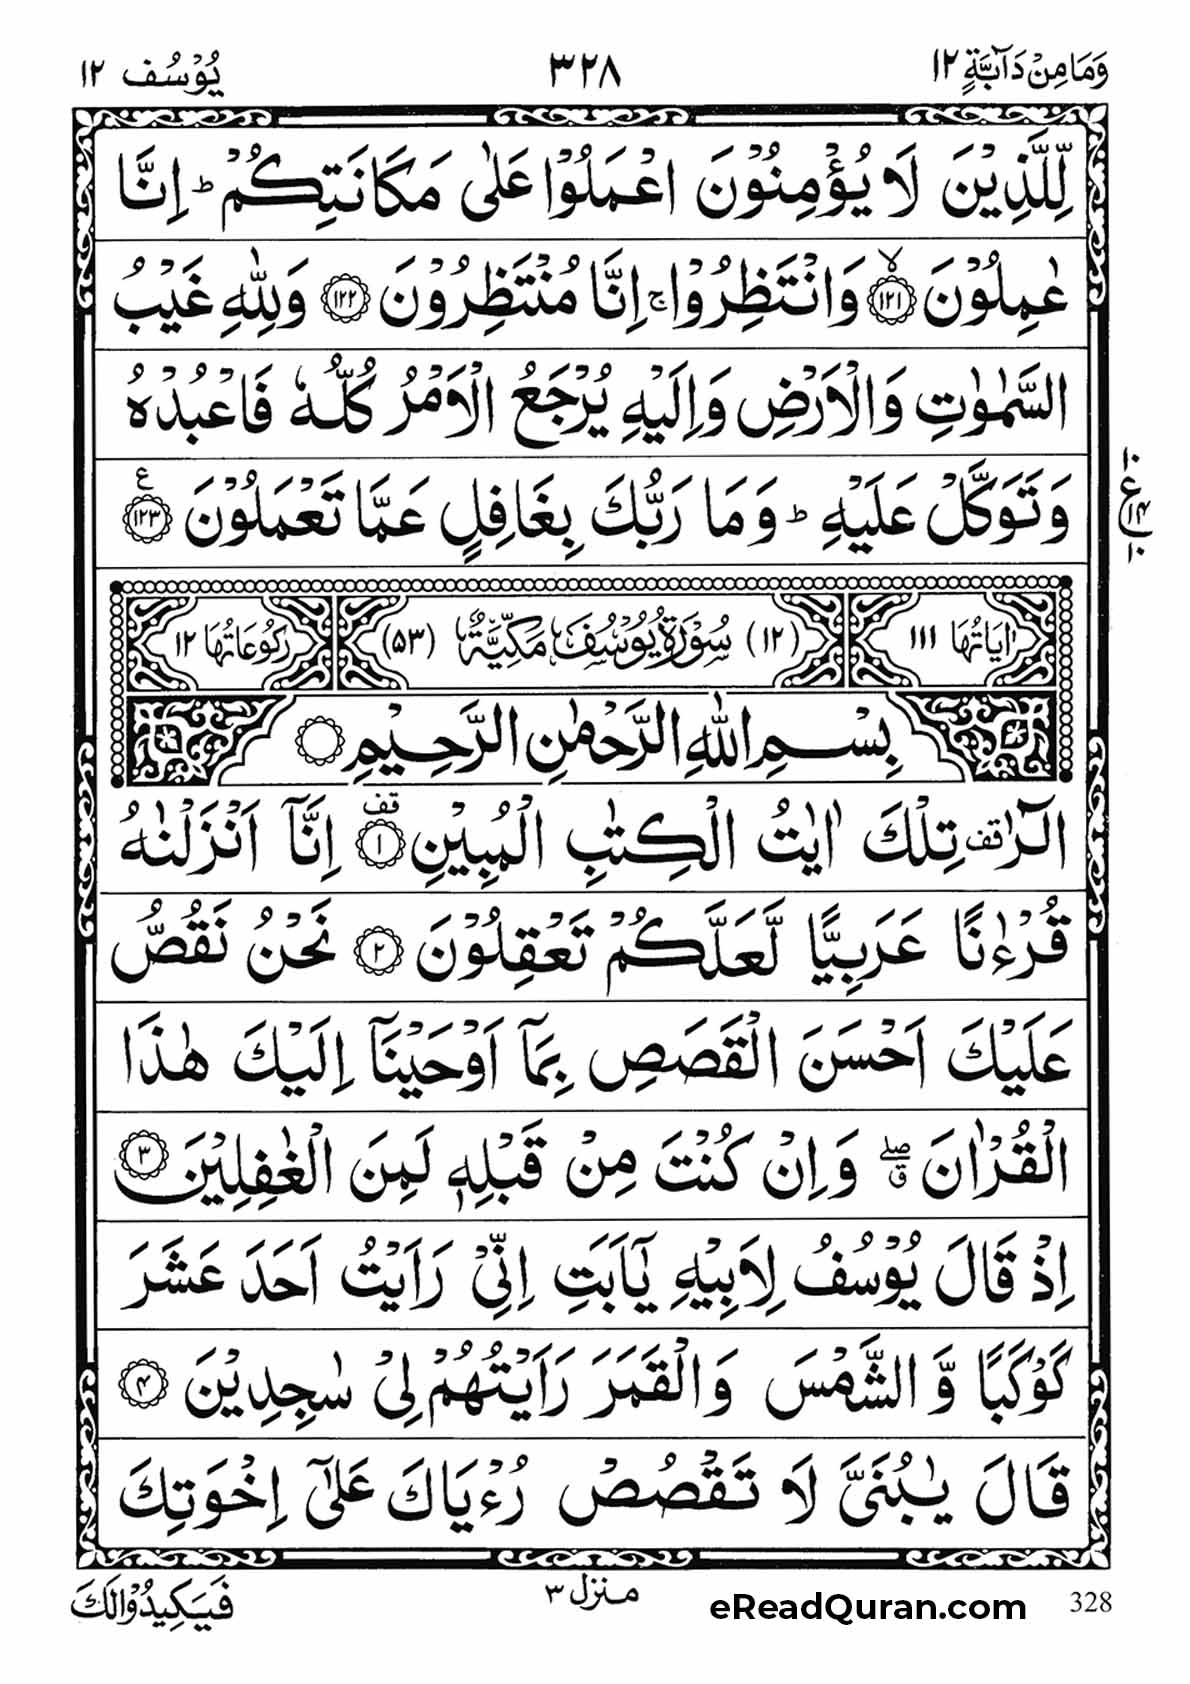 وَمَا مِنْ دَآبَّةٍ ١٢ ٣٢٨ يُوْسُف ١٢
لِّلَّذِيْنَ لَا يُؤْمِنُوْنَ اعْمَلُوْا عَلٰى مَكَانَتِكُمْ ؕ اِنَّا
عٰمِلُوْنَ ۙ﴿١٢١﴾ وَانْتَظِرُوْا ۚ اِنَّا مُنْتَظِرُوْنَ ﴿١٢٢﴾ وَلِلّٰهِ غَيْبُ
السَّمٰوٰتِ وَالْاَرْضِ وَاِلَيْهِ يُرْجَعُ الْاَمْرُ كُلُّهٗ فَاعْبُدْهُ
وَتَوَكَّلْ عَلَيْهِ ؕ وَمَا رَبُّكَ بِغَافِلٍ عَمَّا تَعْمَلُوْنَ ﴿١٢٣﴾ ع
١٠ ع ١٤ ١٠
اٰيَاتُهَا ١١١ (١٢) سُوْرَةُ يُوْسُفَ مَكِّيَّةٌ (٥٣) رُكُوْعَاتُهَا ١٢
بِسْمِ اللّٰهِ الرَّحْمٰنِ الرَّحِيْمِ
الٓرٰ قف تِلْكَ اٰيٰتُ الْكِتٰبِ الْمُبِيْنِ ﴿١﴾ قف اِنَّآ اَنْزَلْنٰهُ
قُرْءٰنًا عَرَبِيًّا لَّعَلَّكُمْ تَعْقِلُوْنَ ﴿٢﴾ نَحْنُ نَقُصُّ
عَلَيْكَ اَحْسَنَ الْقَصَصِ بِمَآ اَوْحَيْنَآ اِلَيْكَ هٰذَا
الْقُرْاٰنَ ۖق وَاِنْ كُنْتَ مِنْ قَبْلِهٖ لَمِنَ الْغٰفِلِيْنَ ﴿٣﴾
اِذْ قَالَ يُوْسُفُ لِاَبِيْهِ يٰٓاَبَتِ اِنِّيْ رَاَيْتُ اَحَدَ عَشَرَ
كَوْكَبًا وَّ الشَّمْسَ وَالْقَمَرَ رَاَيْتُهُمْ لِيْ سٰجِدِيْنَ ﴿٤﴾
قَالَ يٰبُنَيَّ لَا تَقْصُصْ رُءْيَاكَ عَلٰٓى اِخْوَتِكَ
فَيَكِيْدُوْا لَكَ منزل ٣ eReadQuran.com 328